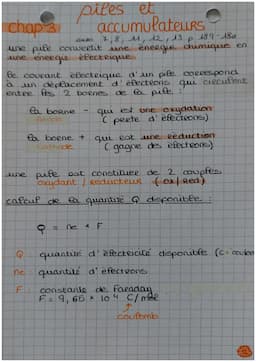 chap 3
piles et
accumulateurs
exos 7, 8, 11, 12, 13 p 189-190
une pile convertit une énergie chimique en
une énergie électrique
Le courant électrique d'un pile correspond
à un déplacement d'électrons qui circulent
entre les 2 bornes de la pile :
la borne - qui est une oxydation
anode ( perte d'électrons)
la borne + qui est une réduction
cathode ( gagne des électrons)
une pile est constituée de 2 couples
oxydant / réducteur (ox / red)
calcul de la quantité Q disponible :
Q = ne × F
Q quantité d'électricité disponible (C :
ne quantité d'électrons
F constante de Faraday
F = 9,65 × 10⁴ C / mol
coulomb